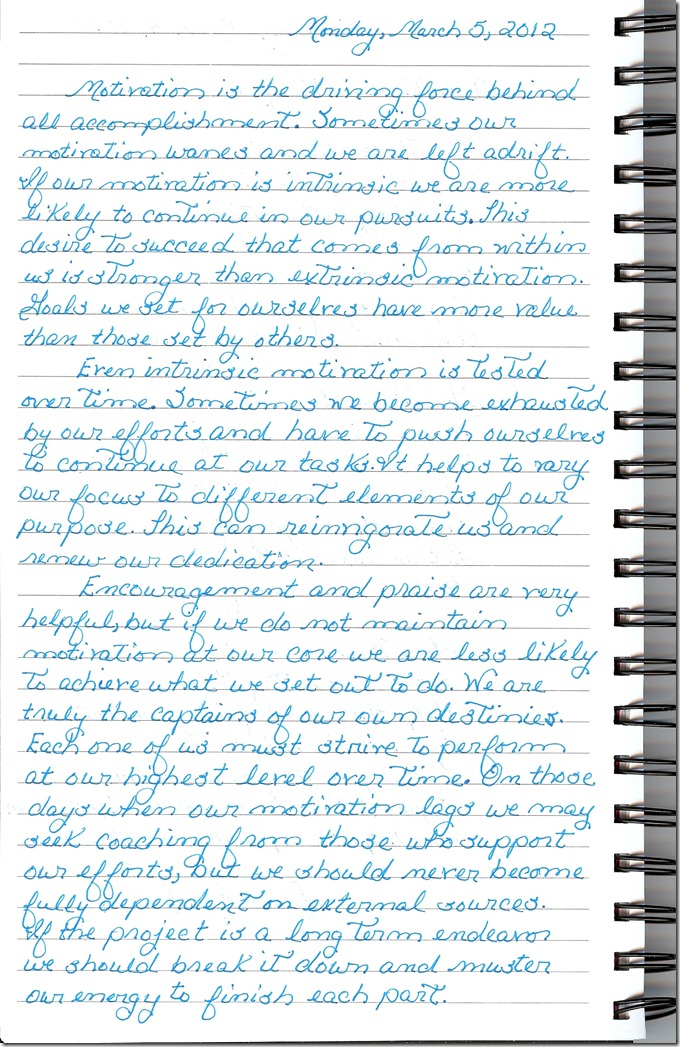 Monday, March 5, 2012
Motivation is the driving force behind
all accomplishment. Sometimes our
motivation wanes and we are left adrift.
If our motivation is intrinsic we are more
likely to continue in our pursuits. This
desire to succeed that comes from within
us is stronger than extrinsic motivation.
Goals we set for ourselves have more value
than those set by others.
Even intrinsic motivation is tested
over time. Sometimes we become exhausted
by our efforts and have to push ourselves
to continue at our tasks. It helps to vary
our focus to different elements of our
purpose. This can reinvigorate us and
renew our dedication.
Encouragement and praise are very
helpful, but if we do not maintain
motivation at our core we are less likely
to achieve what we set out to do. We are
truly the captains of our own destinies.
Each one of us must strive to perform
at our highest level over time. On those
days when our motivation lags we may
seek coaching from those who support
our efforts, but we should never become
fully dependent on external sources.
If the project is a long term endeavor
we should break it down and muster
our energy to finish each part.